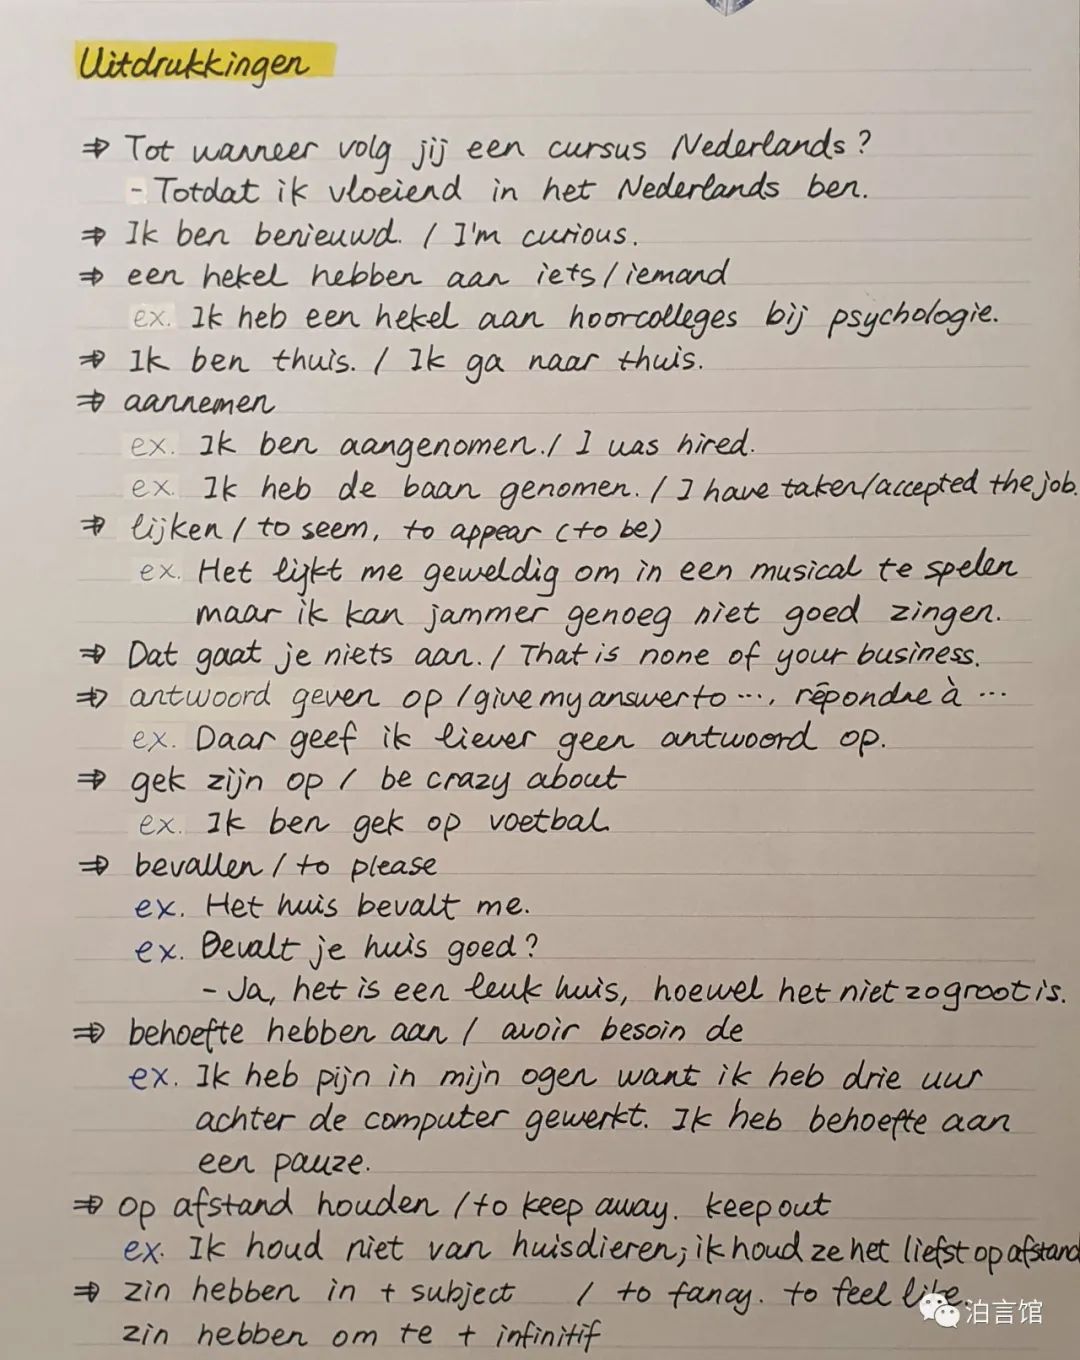 Uitdrukkingen
⇒ Tot wanneer volg jij een cursus Nederlands?
- Totdat ik vloeiend in het Nederlands ben.
⇒ Ik ben benieuwd. / I'm curious.
⇒ een hekel hebben aan iets / iemand
ex. Ik heb een hekel aan hoorcolleges bij psychologie.
⇒ Ik ben thuis. / Ik ga naar thuis.
⇒ aannemen
ex. Ik ben aangenomen. / I was hired.
ex. Ik heb de baan genomen. / I have taken/accepted the job.
⇒ lijken / to seem, to appear (to be)
ex. Het lijkt me geweldig om in een musical te spelen
maar ik kan jammer genoeg niet goed zingen.
⇒ Dat gaat je niets aan. / That is none of your business.
⇒ antwoord geven op / give my answer to ..., répondre à ...
ex. Daar geef ik liever geen antwoord op.
⇒ gek zijn op / be crazy about
ex. Ik ben gek op voetbal.
⇒ bevallen / to please
ex. Het huis bevalt me.
ex. Bevalt je huis goed?
- Ja, het is een leuk huis, hoewel het niet zo groot is.
⇒ behoefte hebben aan / avoir besoin de
ex. Ik heb pijn in mijn ogen want ik heb drie uur
achter de computer gewerkt. Ik heb behoefte aan
een pauze.
⇒ op afstand houden / to keep away. keep out
ex. Ik houd niet van huisdieren; ik houd ze het liefst op afstand
⇒ zin hebben in + subject / to fancy. to feel like.
zin hebben om te + infinitif
泊言馆